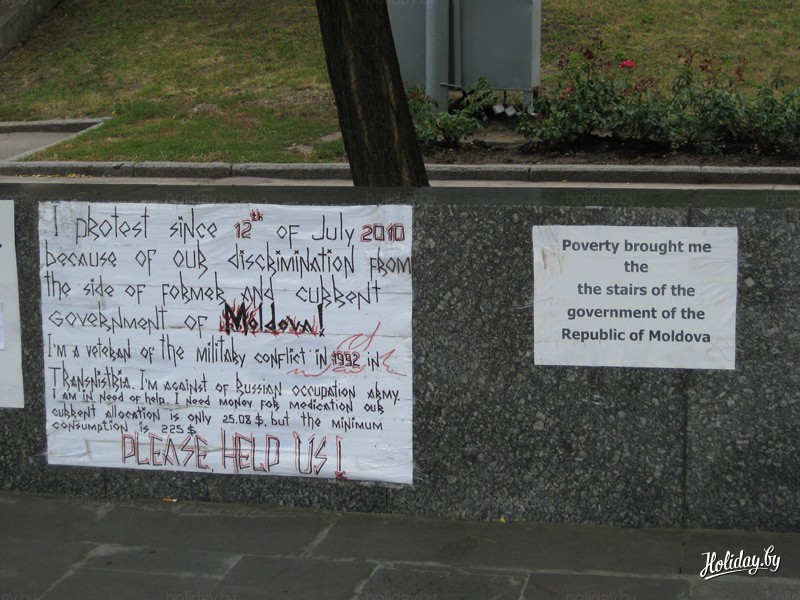 I protest since 12th of July 2010
because of our discrimination from
the side of former and current
government of Moldova!
I'm a veteran of the military conflict in 1992 in
Transnistria. I'm against of Russian occupation army.
I am in need of help. I need money for medication our
current allocation is only 25.08 $, but the minimum
consumption is 225 $
PLEASE, HELP US!
Poverty brought me
the
the stairs of the
government of the
Republic of Moldova
Holiday.by